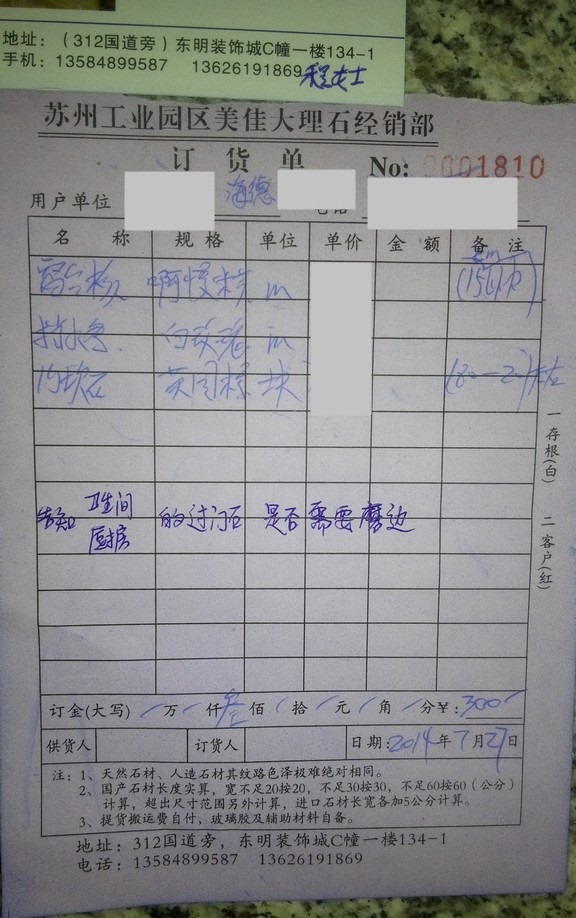 地址：（312国道旁）东明装饰城C幢一楼134-1
手机：13584899587 13626191869 程女士
苏州工业园区美佳大理石经销部
订货单
No: 0001810
用户单位 海德 电话
名称 规格 单位 单价 金额 备注
窗台板 啊曼米黄 m
挡水条 白玫瑰 m
门坎石 英国棕 块
一存根(白) 二客户(红)
告知 卫生间 的过门石 是否需要磨边
厨房
订金(大写) 万 仟 叁佰 拾 元 角 分￥: 300
供货人 订货人 日期: 2014年7月27日
注：1、天然石材、人造石材其纹路色泽极难绝对相同。
2、国产石材长度实算，宽不足20按20，不足30按30，不足60按60（公分）
计算，超出尺寸范围另外计算，进口石材长宽各加5公分计算。
3、提货搬运费自付，玻璃胶及辅助材料自备。
地址：312国道旁，东明装饰城C幢一楼134-1
电话：13584899587 13626191869